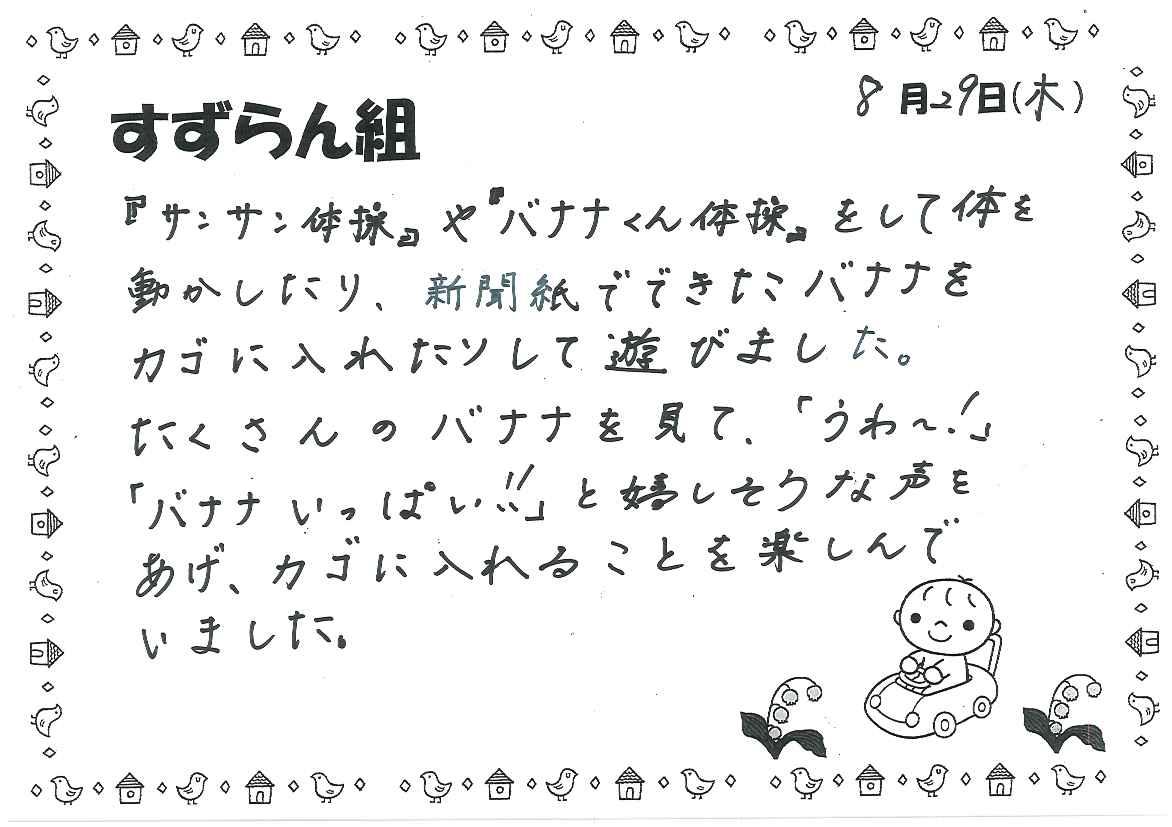 8月29日(木)
すずらん組
『サンサン体操』や『バナナくん体操』をして体を
動かしたり、新聞紙でできたバナナを
カゴに入れたりして遊びました。
たくさんのバナナを見て、「うわ～!」
「バナナいっぱい!!」と嬉しそうな声を
あげ、カゴに入れることを楽しんで
いました。